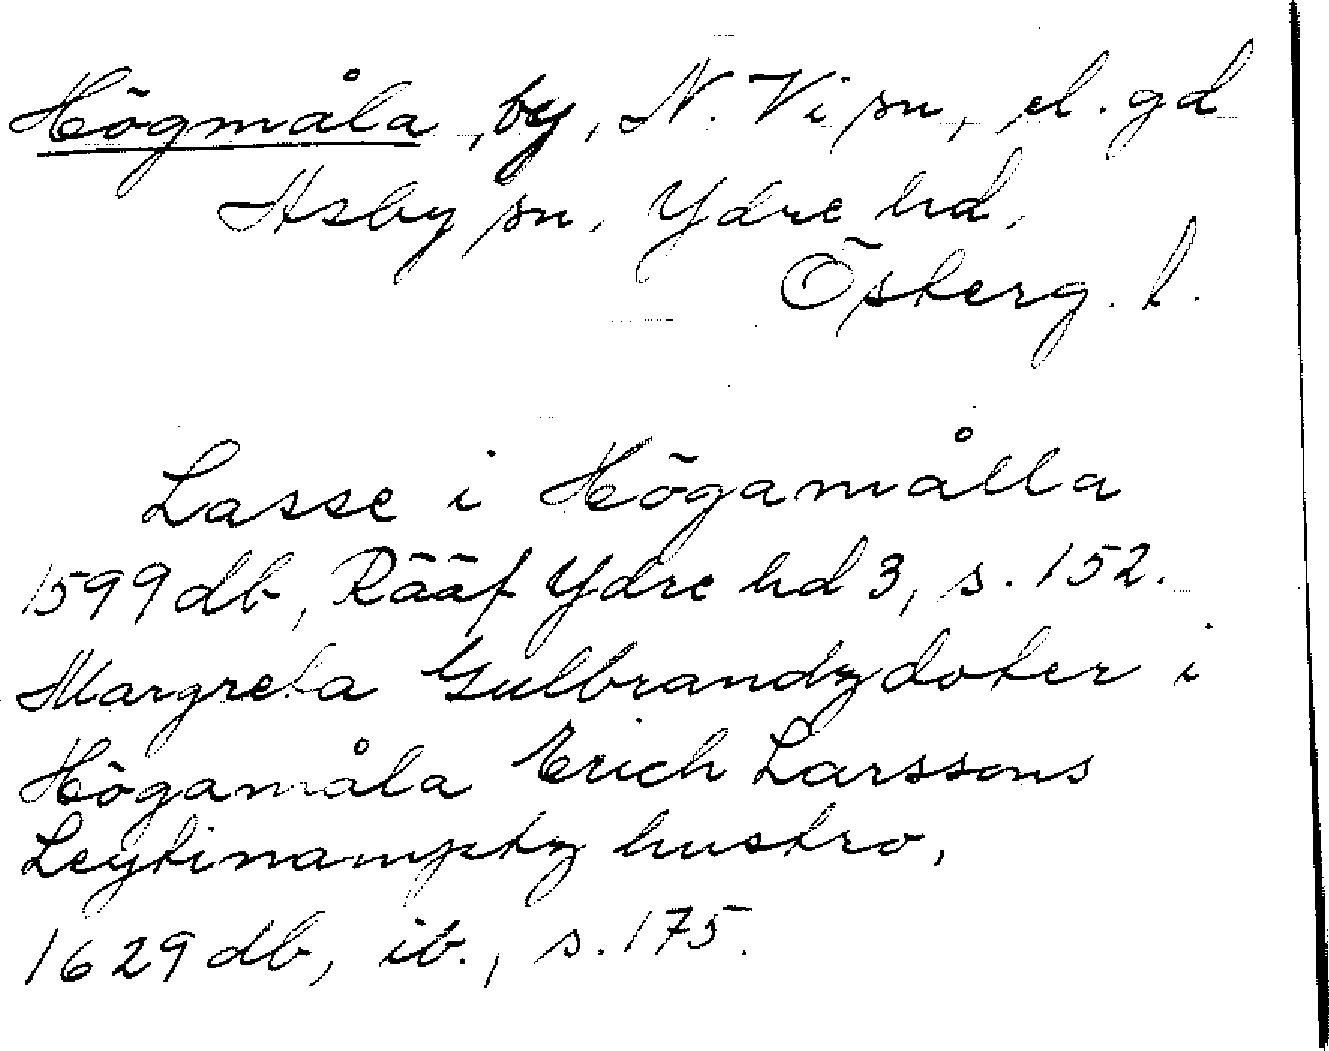 Högmåla, by, N. Vi sn, el. gd
Asby sn, Ydre hd,
Österg. l.
Lasse i Högamålla
1599 db, Rääf Ydre hd 3, s. 152.
Margreta Gulbrandzdoter i
Högamåla Erich Larssons
Leytinamptz hustro,
1629 db, ib., s. 175.